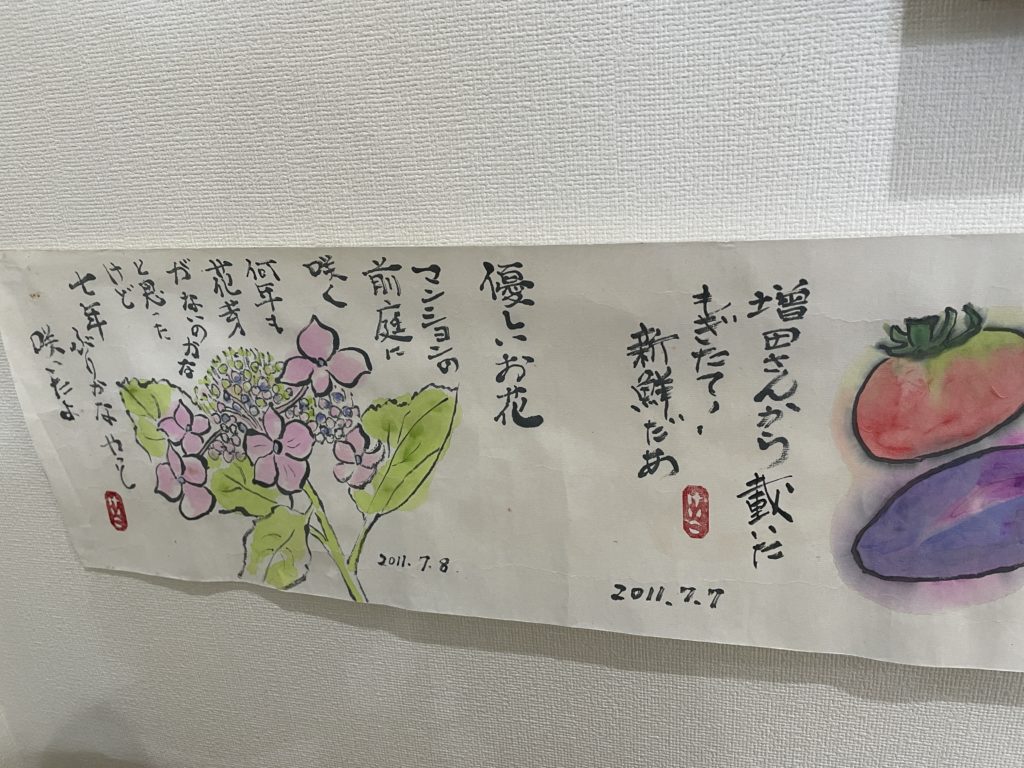 増田さんから載いた
もぎたて、
新鮮だめ
けいこ
2011.7.7
優しいお花
マンションの
前庭に
咲く
何年も
花芽
がないのかな
と思った
けど
七年ぶりかな やっし
咲いたよ
けいこ
2011.7.8.